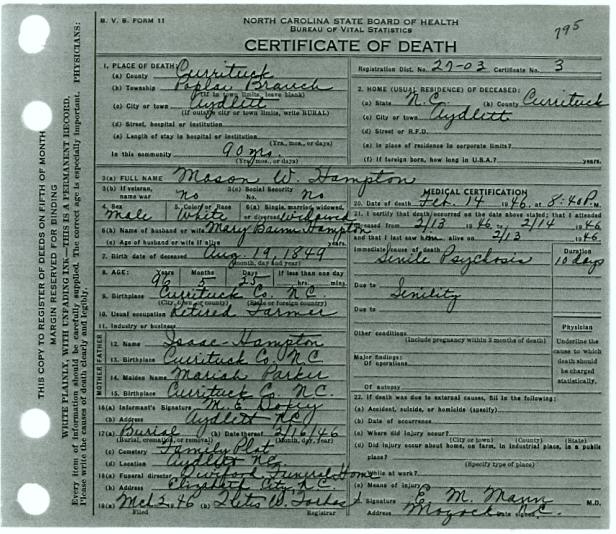 B. V. S. FORM 11
NORTH CAROLINA STATE BOARD OF HEALTH
BUREAU OF VITAL STATISTICS
795
CERTIFICATE OF DEATH
THIS COPY TO REGISTER OF DEEDS ON FIFTH OF MONTH
MARGIN RESERVED FOR BINDING
WRITE PLAINLY, WITH UNFADING INK—THIS IS A PERMANENT RECORD.
Every item of information should be carefully supplied. The correct age is especially important. PHYSICIANS:
Please write the causes of death clearly and legibly.
1. PLACE OF DEATH:
(a) County Currituck
(b) Township Poplar Branch
(If in town limits, leave blank)
(c) City or town Aydlett
(If outside city or town limits, write RURAL)
(d) Street, hospital or institution
(e) Length of stay in hospital or institution
(Yrs., mos., or days)
In this community 90 yrs.
(Yrs., mos., or days)
Registration Dist. No. 27-03 Certificate No. 3
2. HOME (USUAL RESIDENCE) OF DECEASED:
(a) State N.C. (b) County Currituck
(c) City or town Aydlett
(d) Street or R.F.D.
(e) In place of residence in corporate limits?
(f) If foreign born, how long in U.S.A.? years.
3(a) FULL NAME Mason W. Hampton
3(b) If veteran, name war No
3(c) Social Security No. No
4. Sex Male
5. Color or Race White
6(a) Single, married, widowed, or divorced Widowed
6(b) Name of husband or wife Mary Baum Hampton
6(c) Age of husband or wife if alive years.
7. Birth date of deceased Aug 19, 1849
(month, day and year)
8. AGE: Years 96 Months 5 Days 25 If less than one day hrs. min.
9. Birthplace Currituck Co. N.C.
(City, town or county) (State or foreign country)
10. Usual occupation Retired Farmer
11. Industry or business
FATHER
12. Name Isaac Hampton
13. Birthplace Currituck Co. N.C.
MOTHER
14. Maiden Name Mariah Parker
15. Birthplace Currituck Co. N.C.
16(a) Informant's Signature M. E.
(b) Address Aydlett N.C.
17(a) Burial (b) Date thereof 2/16/46
(Burial, cremation, or removal) (Month, day, year)
(c) Cemetery Family Plot
(d) Location Aydlett N.C.
18(a) Funeral director Funeral Home
(b) Address Elizabeth City, N.C.
19(a) Mch 2 46 (b)
Filed Registrar
MEDICAL CERTIFICATION
20. Date of Death Feb. 14 1946, at 8:40 P.M.
21. I certify that death occurred on the date above stated; that I attended
deceased from 2/13 1946 to 2/14 1946
and that I last saw alive on 2/13 1946
Immediate cause of death Duration
Senile Psychosis 10 days
Due to Senility
Due to
Other conditions
(Include pregnancy within 3 months of death)
Major findings:
Of operations
Of autopsy
Physician
Underline the cause to which death should be charged statistically.
22. If death was due to external causes, fill in the following:
(a) Accident, suicide, or homicide (specify)
(b) Date of occurrence
(c) Where did injury occur?
(City or town) (County) (State)
(d) Did injury occur about home, on farm, in industrial place, in a public
place?
(Specify type of place)
While at work?
(e) Means of injury
Signature E. M. Mann M.D.
Address Moyock N.C. Date signed